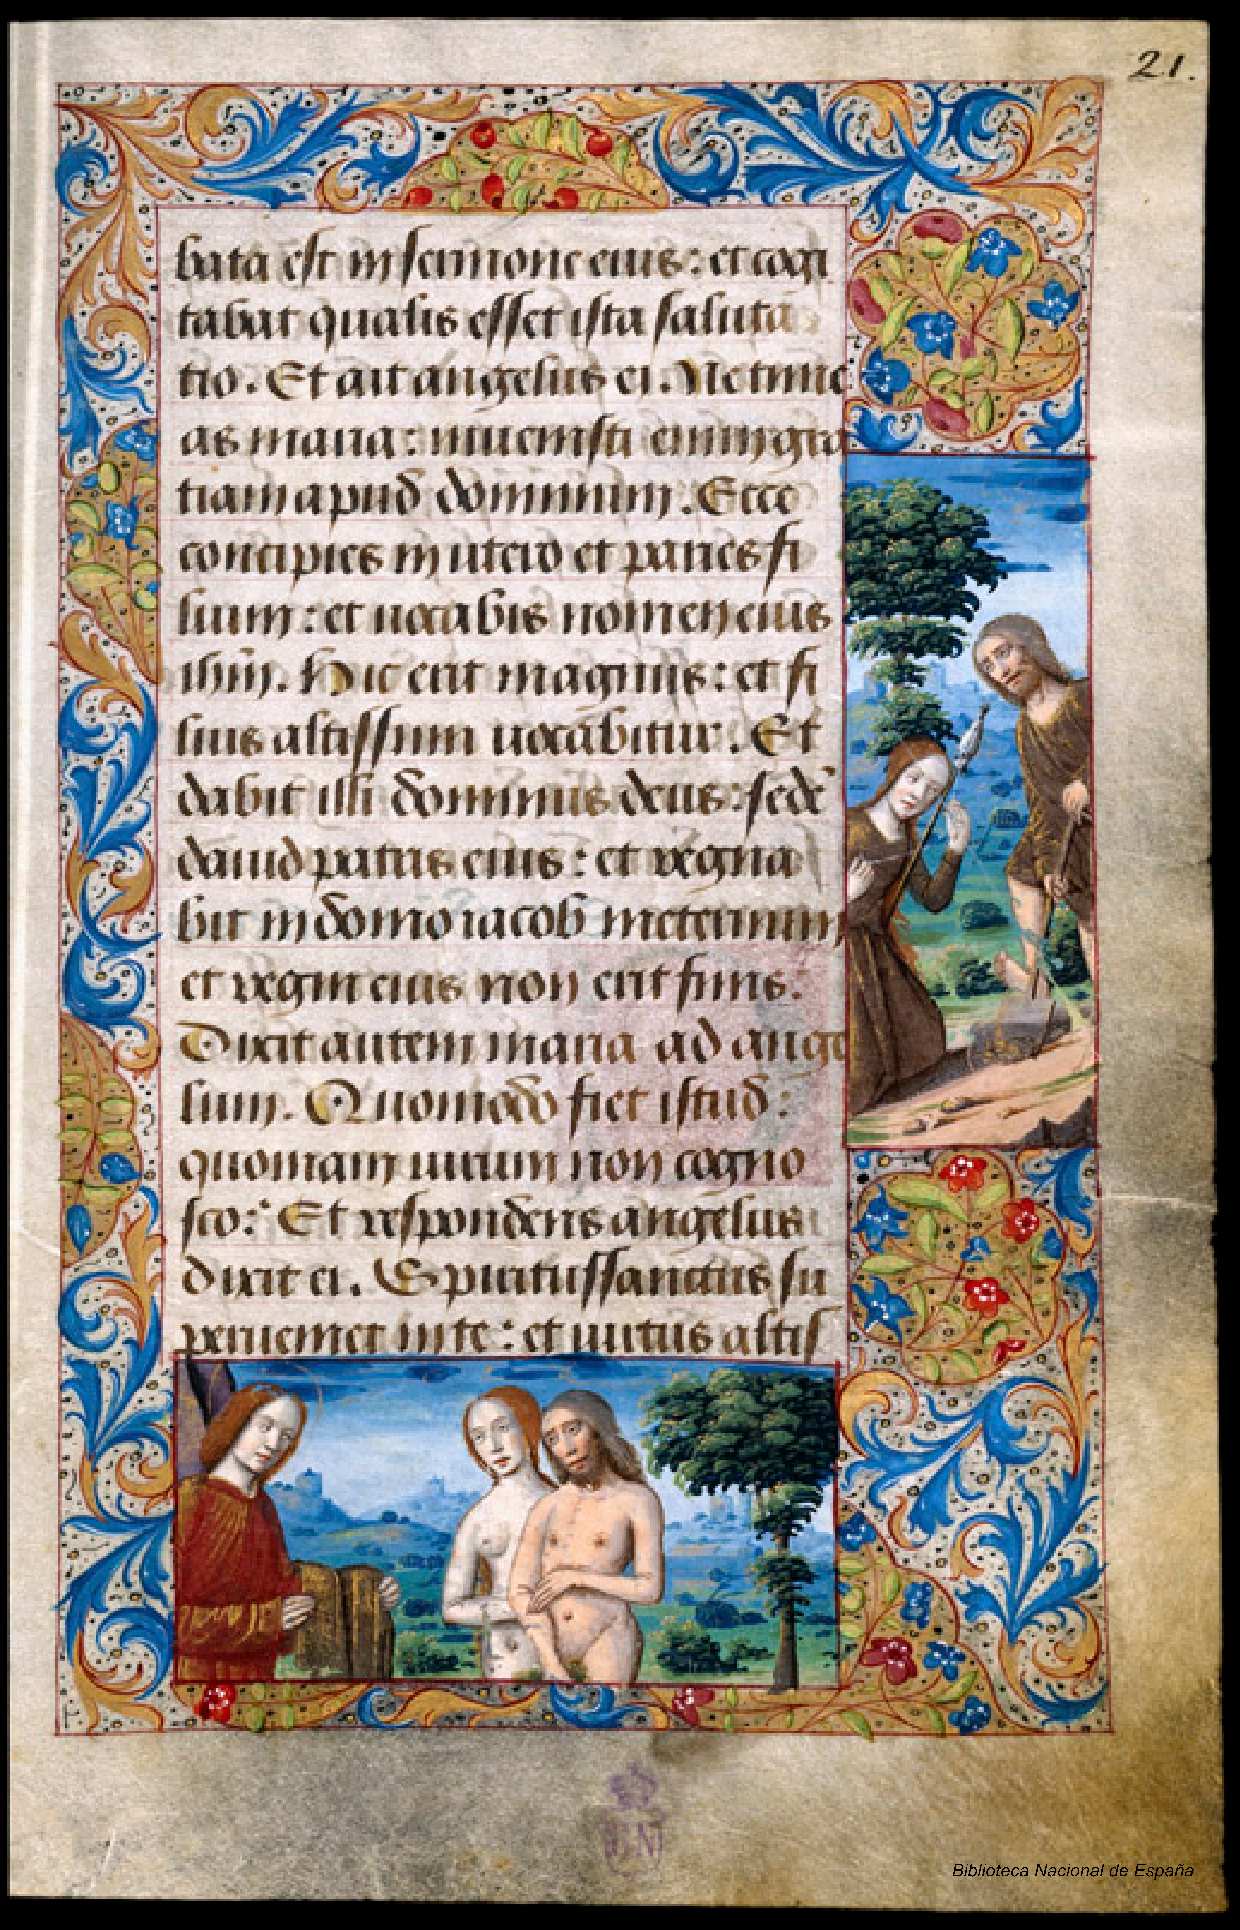 21.
bata est in sermone eius: et cogi
tabat qualis esset ista saluta
tio. Et ait angelus ei. Ne time
as maria: inuenisti enim gra
tiam apud dominum. Ecce
concipies in utero et paries fi
lium: et uocabis nomen eius
ihm̄. Hic erit magnus: et fi
lius altissimi uocabitur. Et
dabit illi dominus deus: sedē
dauid patris eius: et regna
bit in domo iacob in eternum
et regni eius non erit finis:
Dixit autem maria ad ange
lum. Quomodo fiet istud:
quoniam uirum non cogno
sco: Et respondens angelus
dixit ei. Spiritussanctus su
perueniet in te: et uirtus altis
BN
Biblioteca Nacional de España